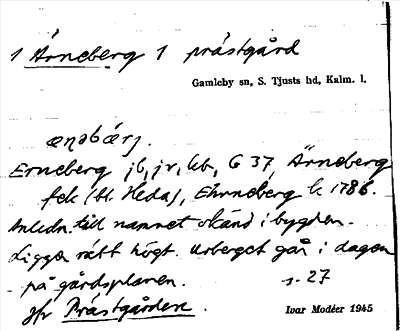 1 Ärneberg 1 prästgård
Gamleby sn, S. Tjusts hd, Kalm. l.
ærnəbærj.
Erneberg jb, jr, kb, G 37, Ärneberg
fek (bl. Heda), Ehrneberg k 1786.
Anledn. till namnet okänd i bygden.
Ligger rätt högt. Urberget går i dagen
på gårdsplanen. s. 27
Jfr Prästgården.
Ivar Modéer 1945